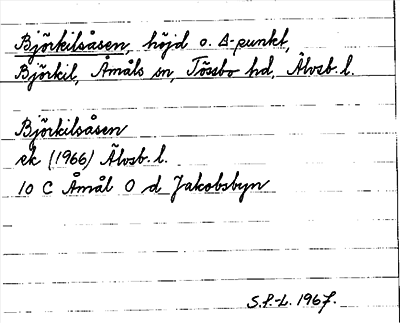 Björkilsåsen, höjd o. Δ-punkt,
Björkil, Åmåls sn, Tössbo hd, Älvsb. l.
Björkilsåsen
ek (1966) Älvsb. l.
10 C Åmål O d Jakobsbyn
S.P.-L. 1967.